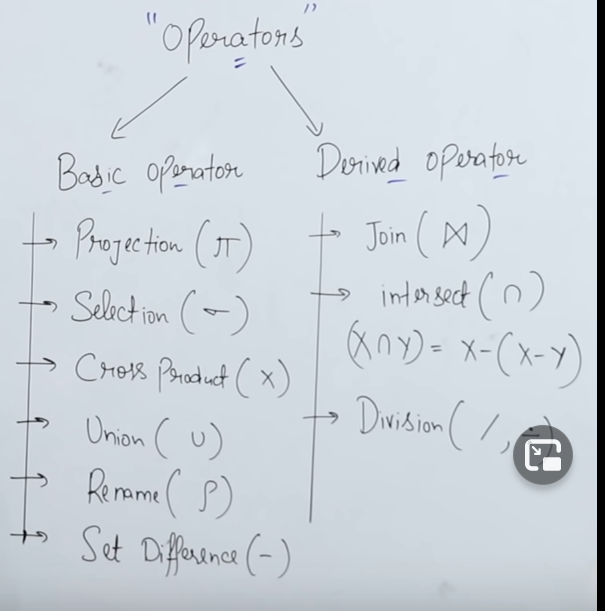 "Operators"
Basic Operator
Projection (π)
Selection (σ)
Cross Product (X)
Union (∪)
Rename (ρ)
Set Difference (-)
Derived Operator
Join (⋈)
intersect (∩)
(X∩Y) = X-(X-Y)
Division (/,